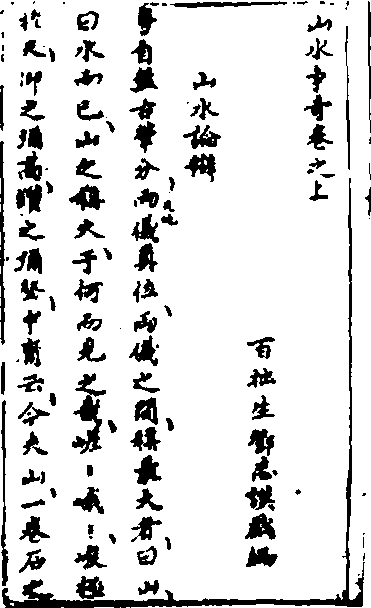 山水爭奇卷之上
百拙生鄧志謨戲編
山水論辯
粤自盤古肇分兩儀天地奠位兩儀之間稱最大者曰山
曰水而已山之稱大于何而見之哉嵯〻峨〻峻極
於天仰之彌高鑽之彌堅中庸云今夫山一卷石之